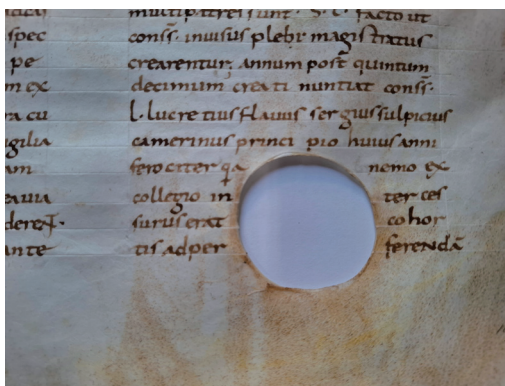 spec
pe
m ex
ra cu
gilia
am
deret
ante
multi patres sunt. S. C. facto ut
conss. inuisus plebi magistratus
crearentur, annum post quintum
decimum creati nuntiat conss.
L. lucretius flauus sergius sulpicius
camerinus princi pio huius anni
ferociter qa nemo ex
collegio in ter ces
surus erat cohor
tis ad per ferendā